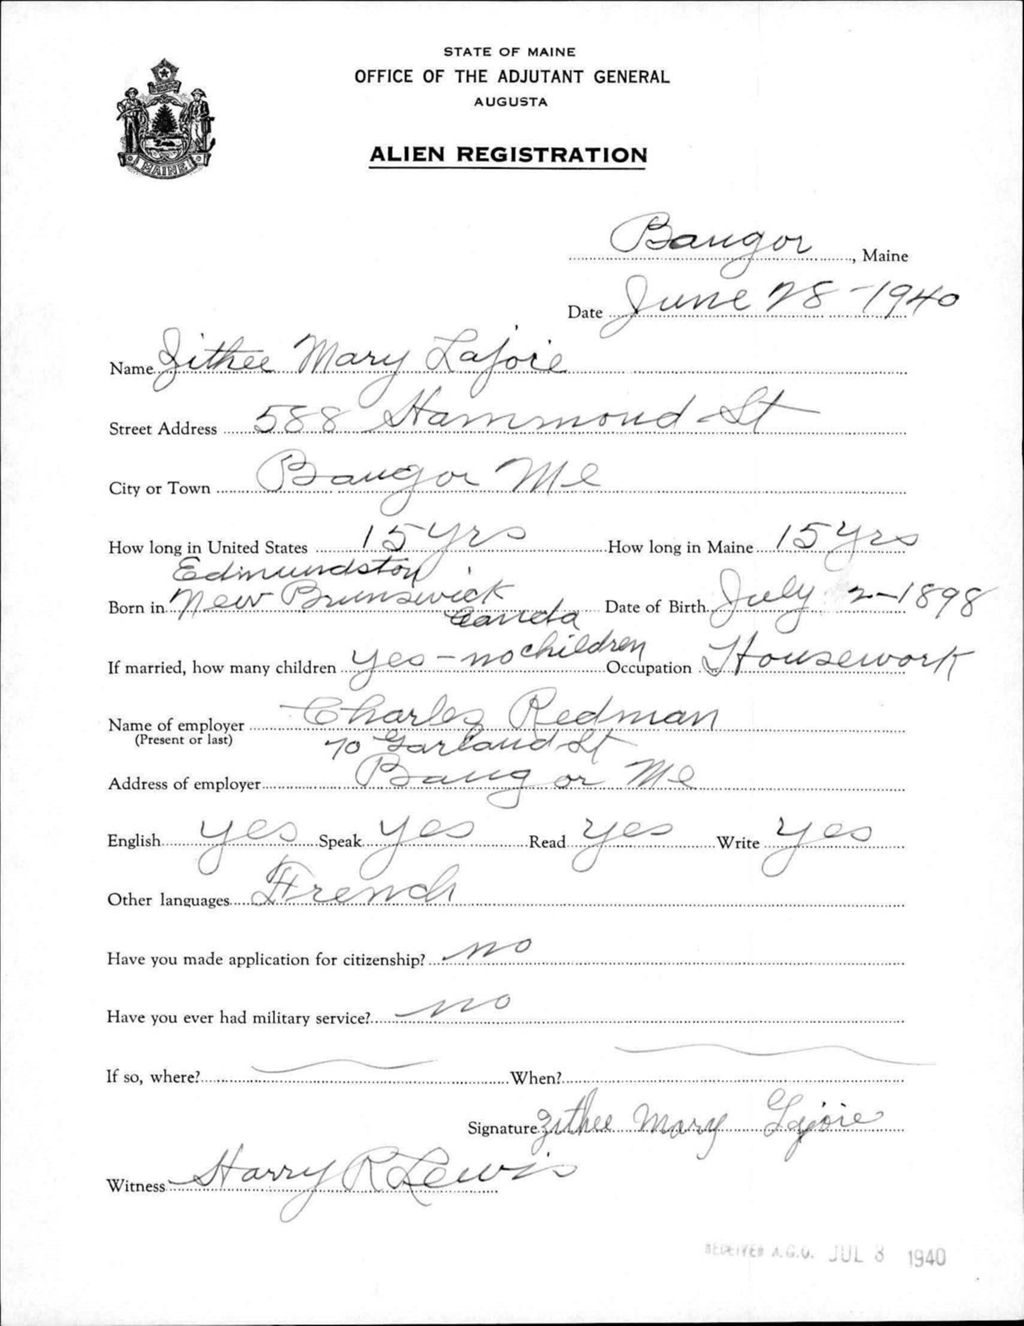 STATE OF MAINE
OFFICE OF THE ADJUTANT GENERAL
AUGUSTA
MAINE
ALIEN REGISTRATION
Bangor, Maine
Date June 28-1940
Name Zithee Mary Lajoie
Street Address 588 Hammond St
City or Town Bangor Me
How long in United States 15 yrs How long in Maine 15 yrs
Edmundston
Born in New Brunswick Date of Birth July 2-1898
Canda
If married, how many children yes - no children Occupation Housework
Name of employer Charles Redman
(Present or last) 70 Garland St
Address of employer Bangor Me
English yes Speak yes Read yes Write yes
Other languages French
Have you made application for citizenship? no
Have you ever had military service? no
If so, where? When?
Signature Zithee Mary Lajoie
Witness Harry R Lewis
RECEIVED A.G.O. JUL 3 1940